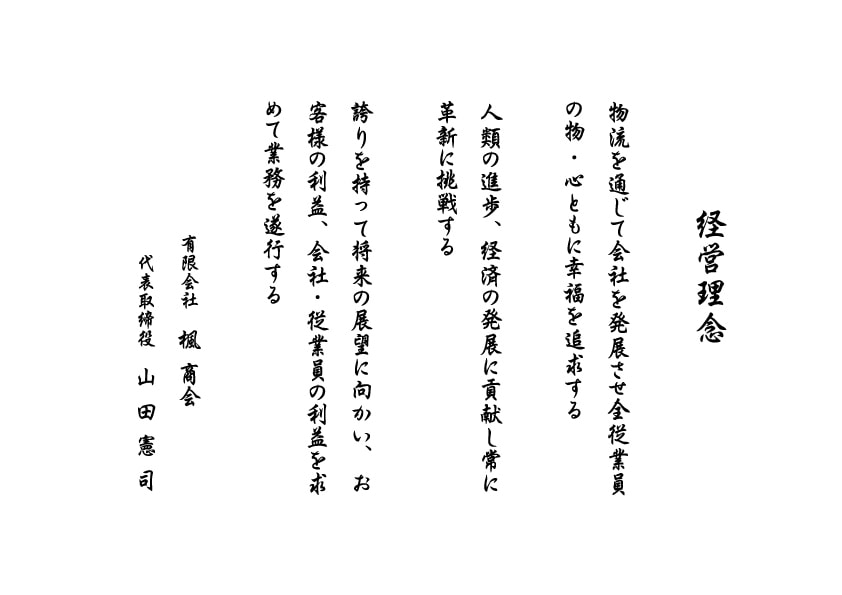 経営理念
物流を通じて会社を発展させ全従業員
の物・心ともに幸福を追求する
人類の進歩、経済の発展に貢献し常に
革新に挑戦する
誇りを持って将来の展望に向かい、お
客様の利益、会社・従業員の利益を求
めて業務を遂行する
有限会社 楓商会
代表取締役 山田憲司